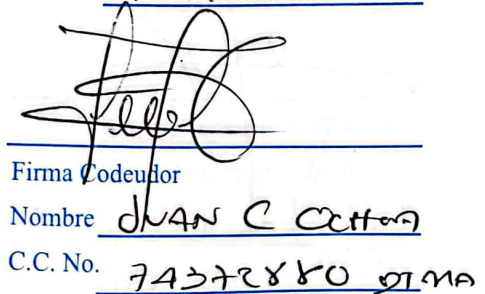 Firma Codeudor
Nombre JUAN C OCHOA
C.C. No. 74372880 DTMA